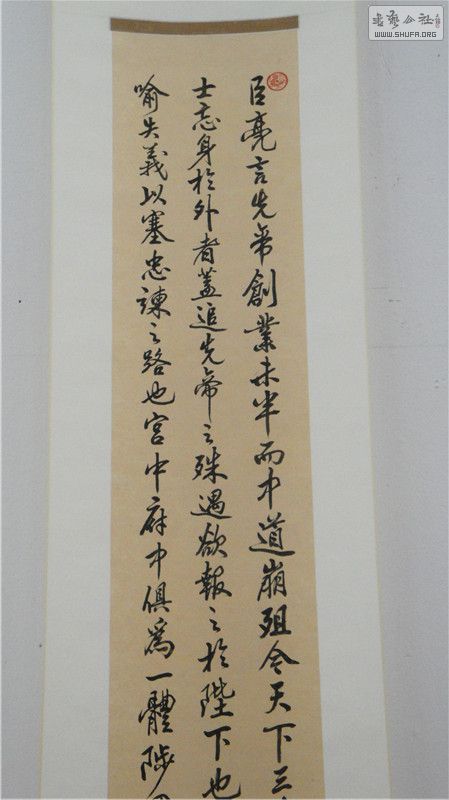 臣亮言先帝創業未半而中道崩殂今天下三
士忘身於外者蓋追先帝之殊遇欲報之於陛下也
喻失義以塞忠諫之路也宮中府中俱爲一體陟
公社
WWW.SHUFA.ORG